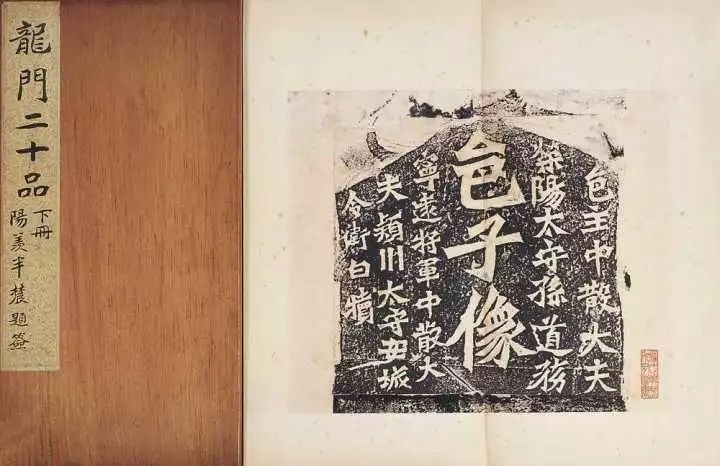 龍門二十品
下冊
陽羨半農題簽
邑主中散大夫
滎陽太守孫道務
邑子像
寧遠將軍中散大
夫潁川太守安城
令衛白犢